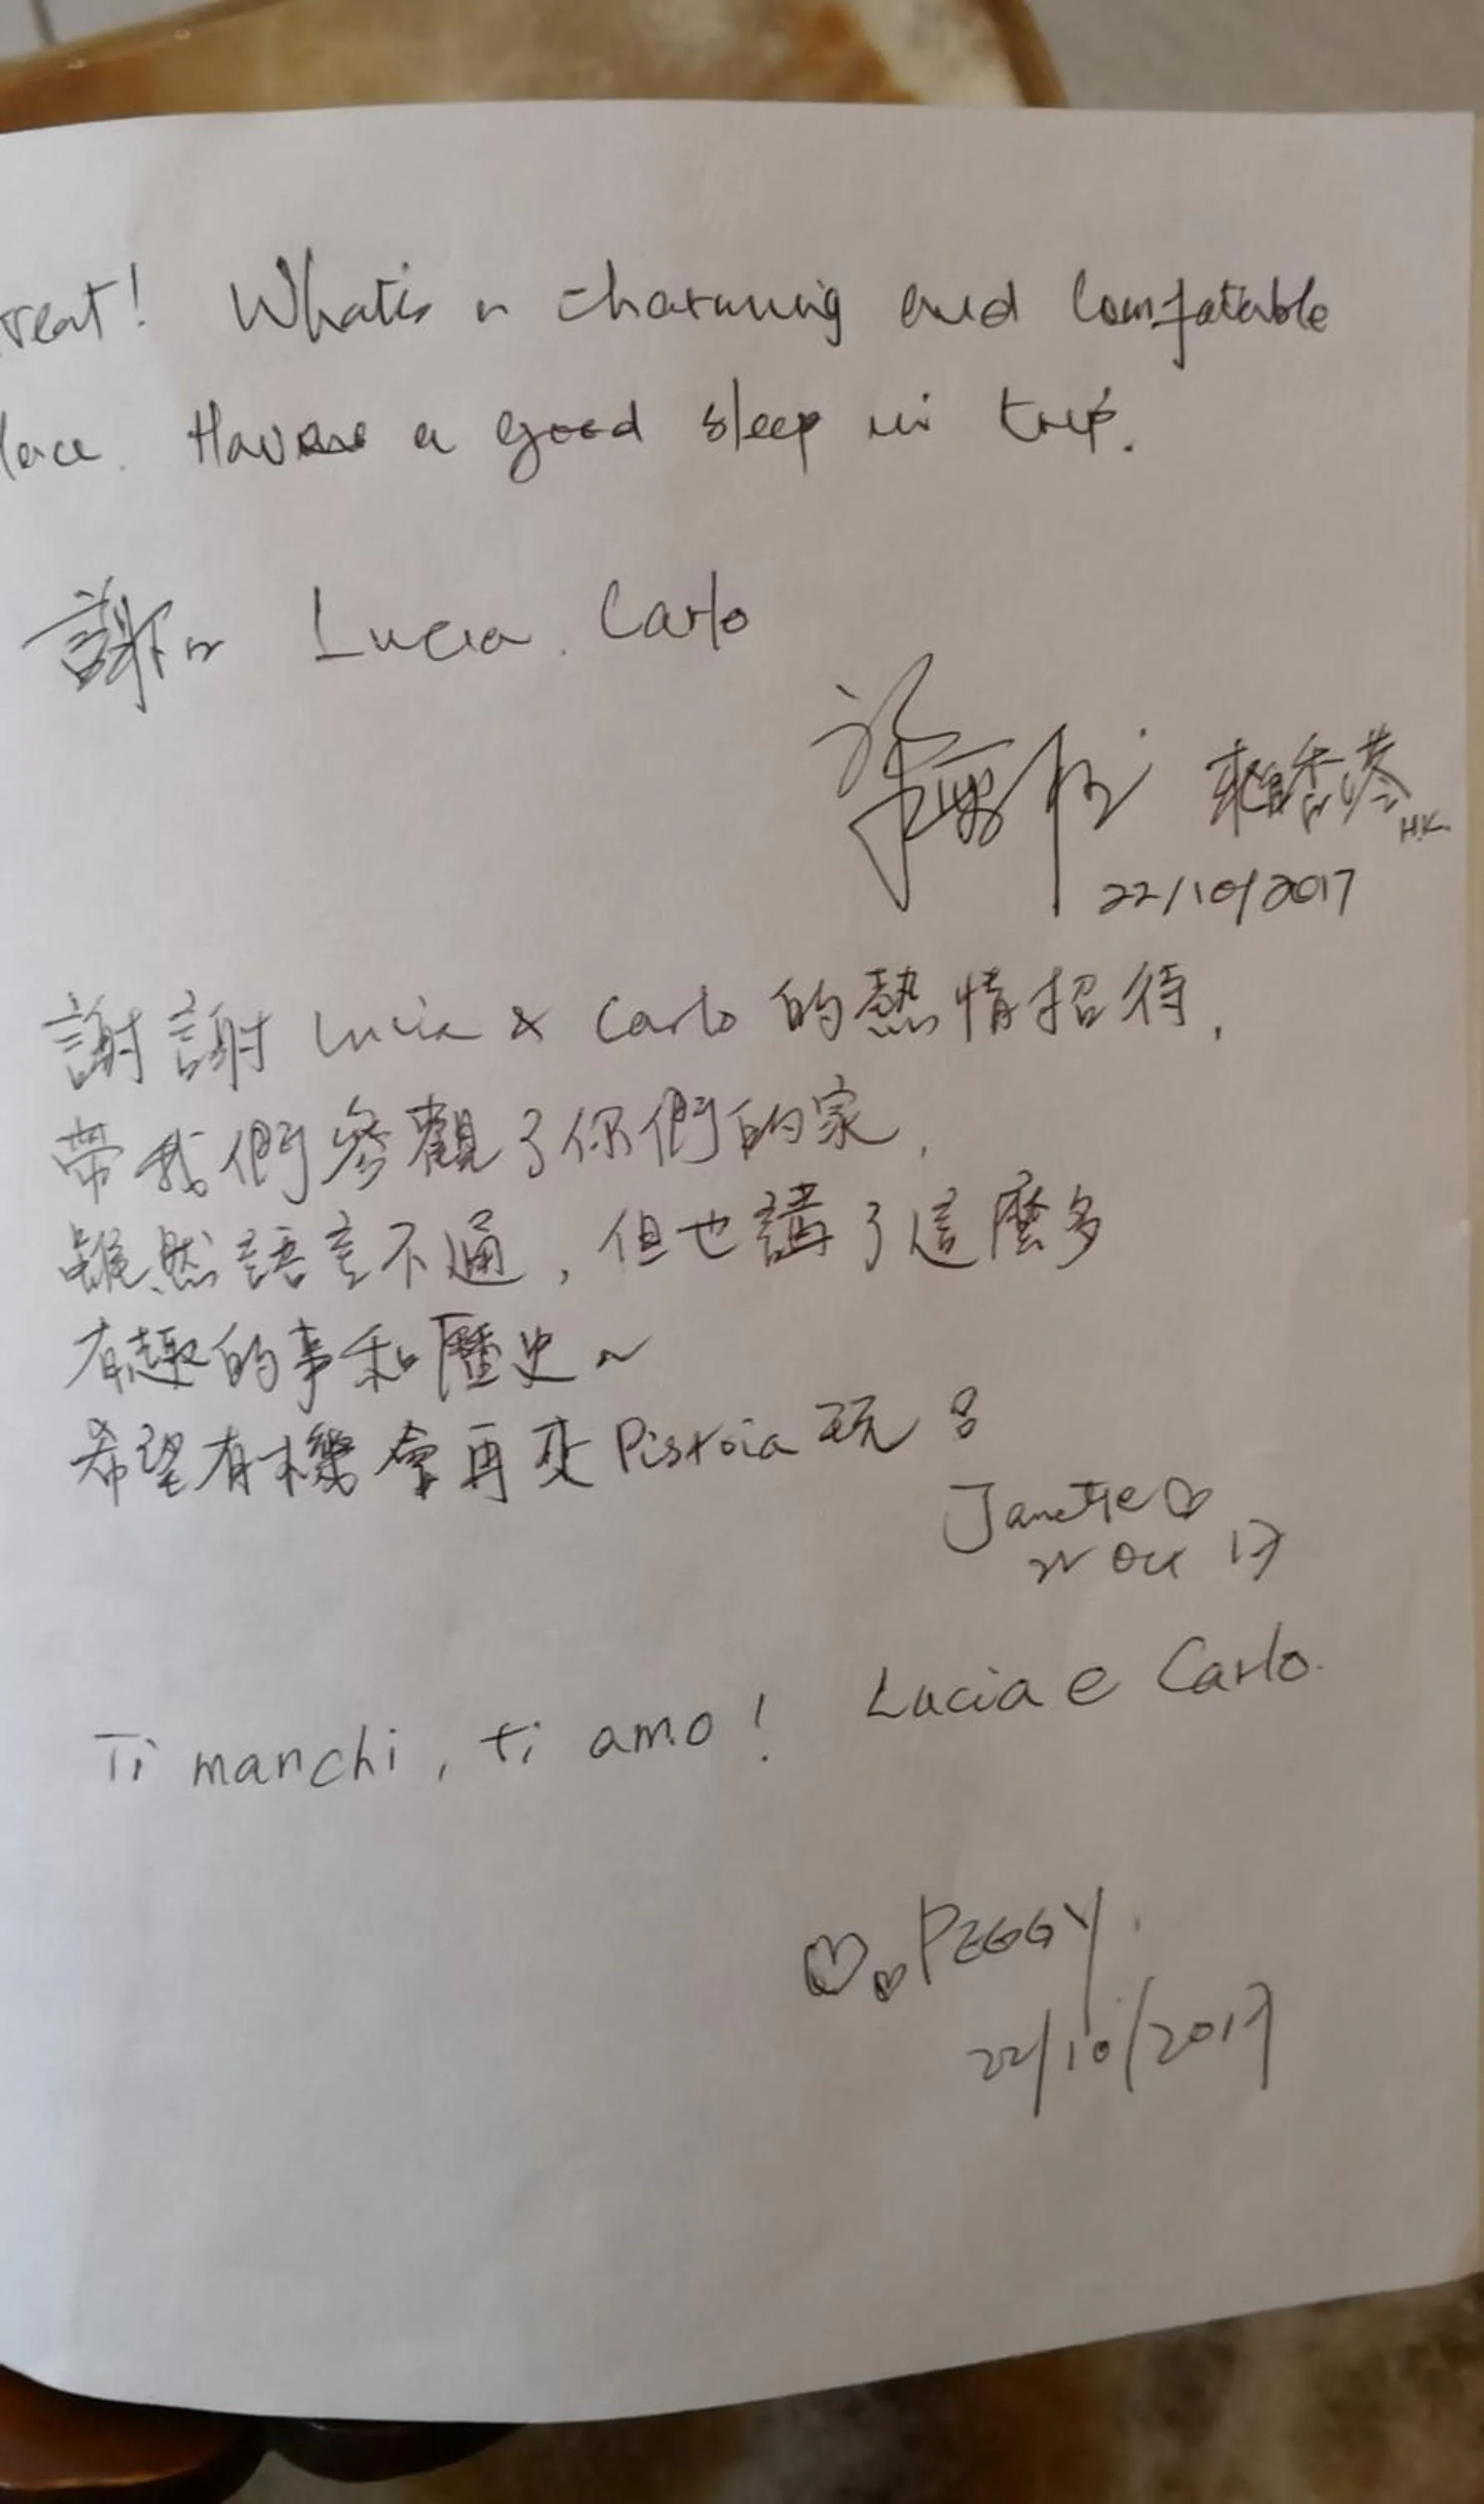 reat! What's a charming and comfatable
lace. Have a good sleep in trip.
謝々 Lucia. Carlo
來自香港 H.K
22/10/2017
謝謝 Lucia & Carlo 的熱情招待,
帶我們參觀了你們的家,
雖然語言不通,但也講了這麼多
有趣的事和歷史~
希望有機會再來Pistoia玩。
Janette♡
22 Oct 17
Ti manchi, ti amo! Lucia e Carlo.
♡.♡ PEGGY.
22/10/2017